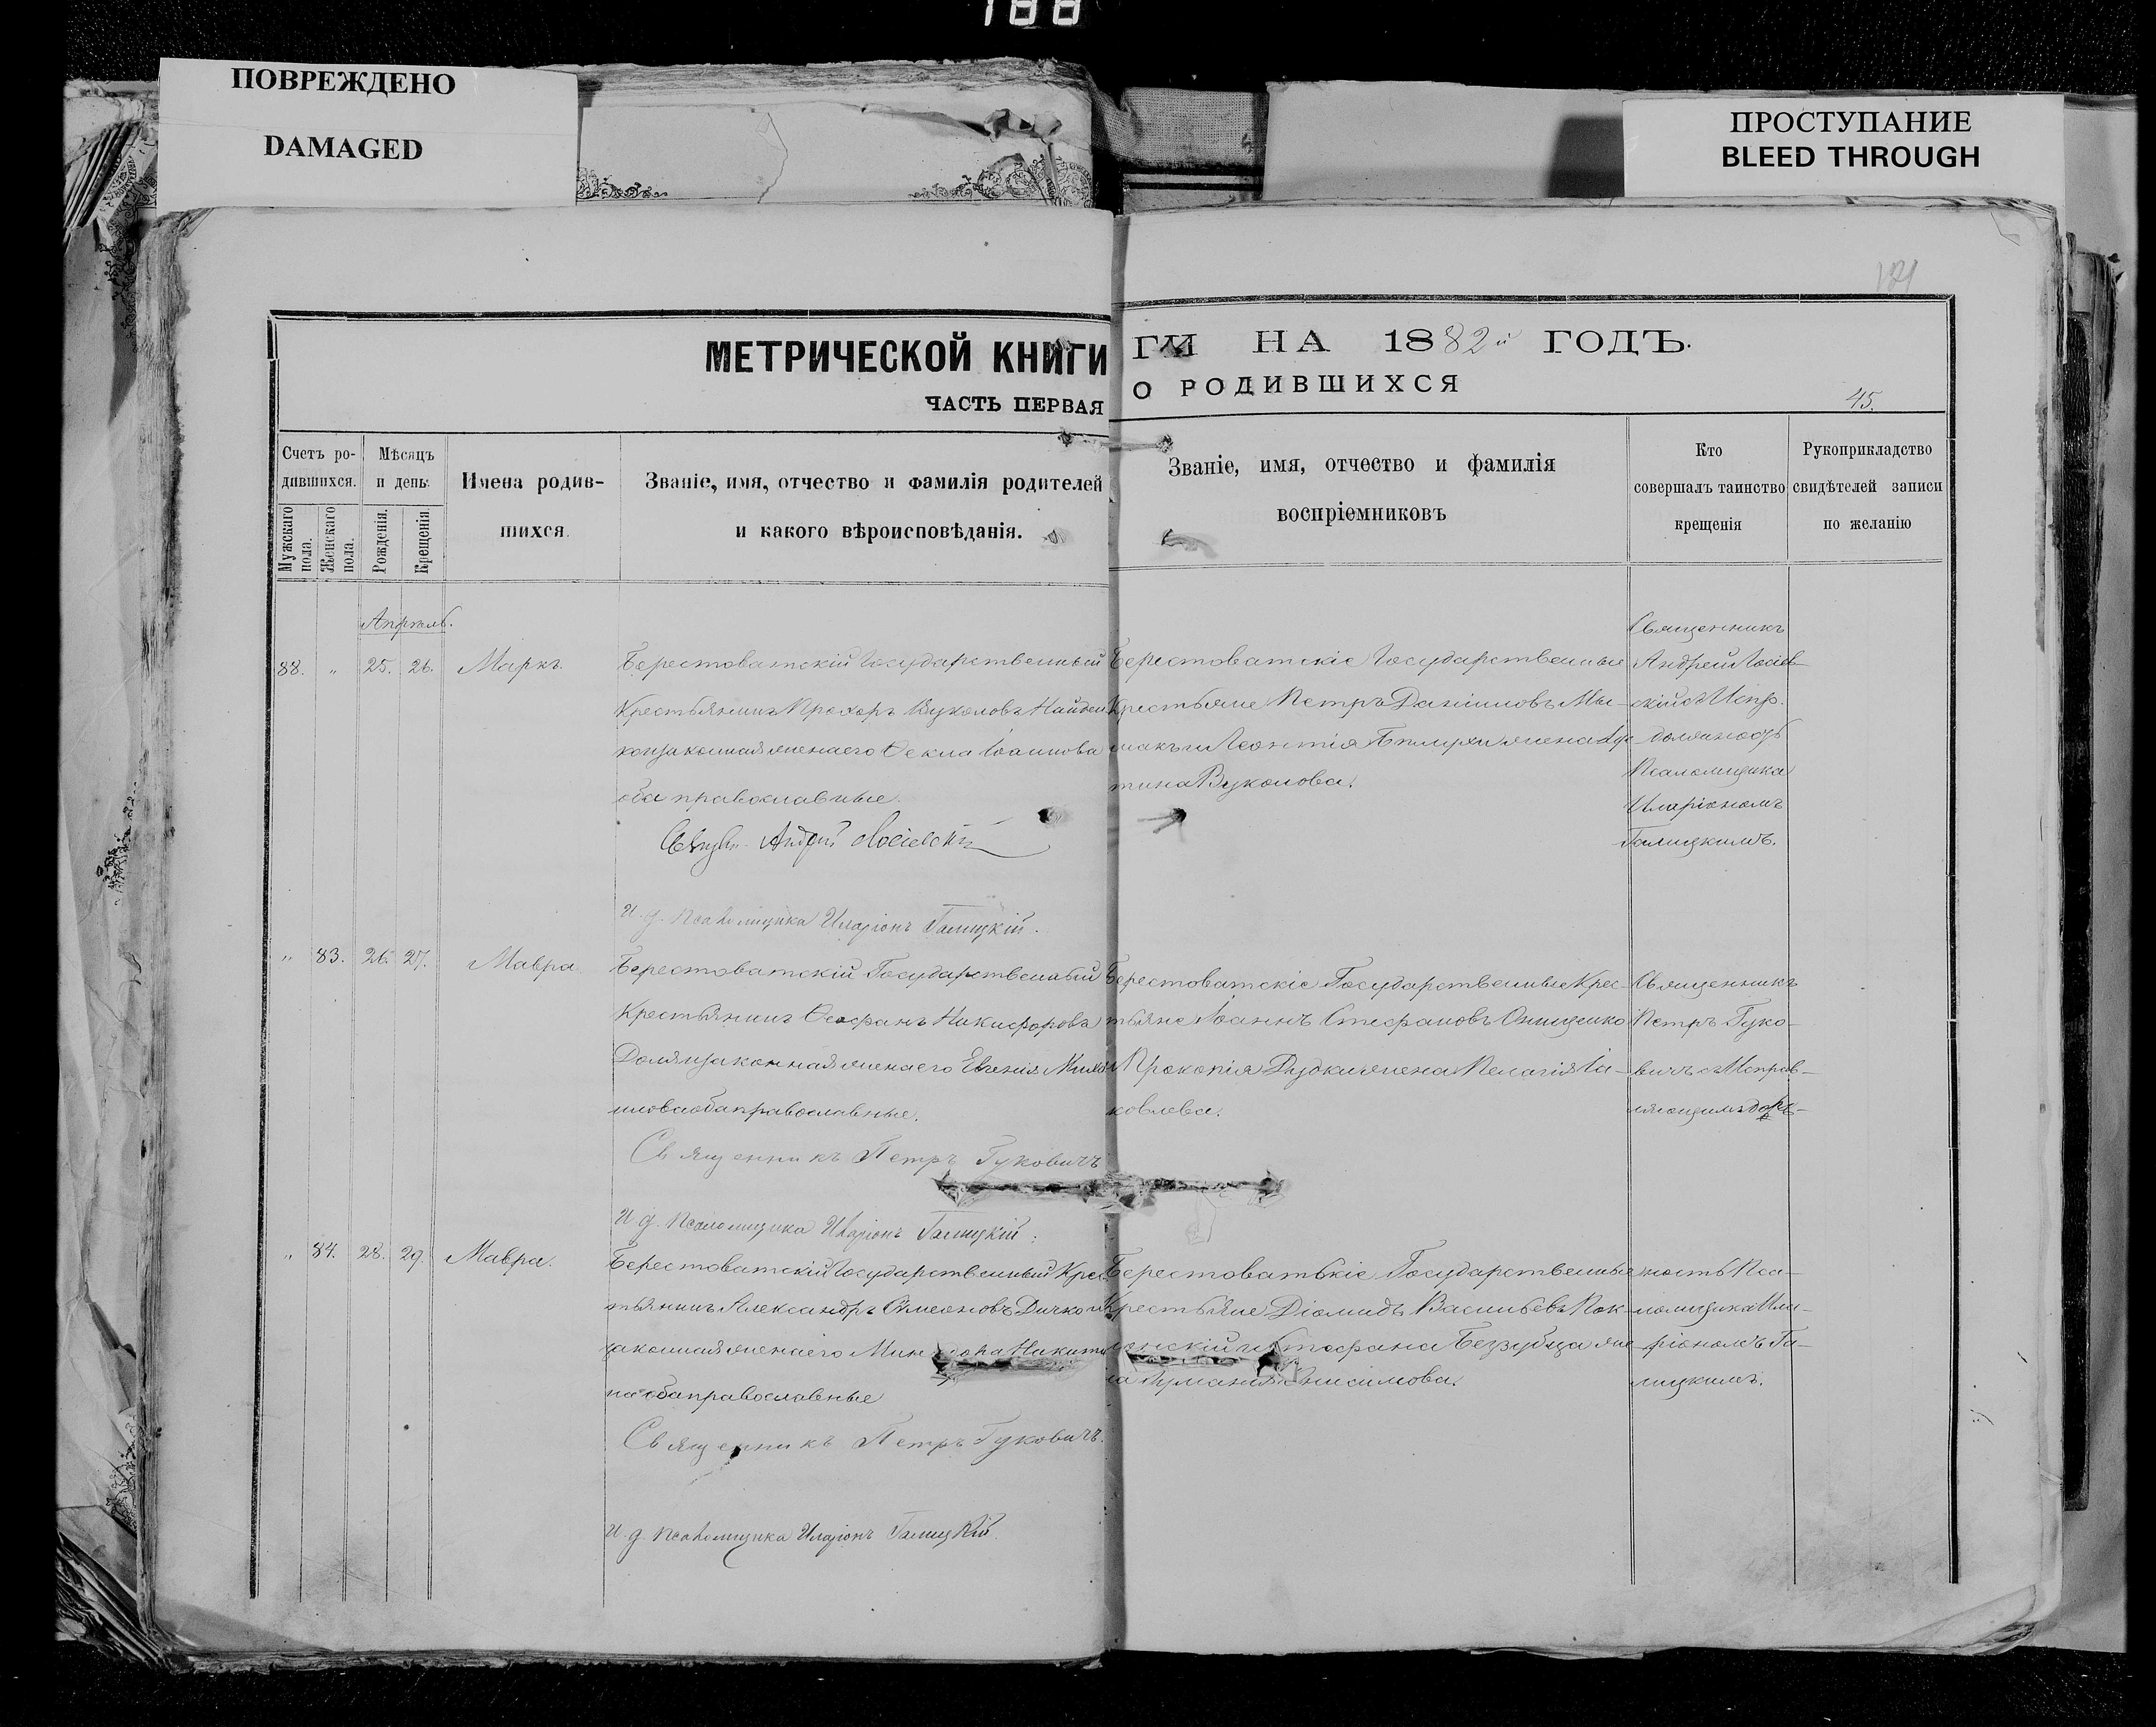 188
ПОВРЕЖДЕНО
DAMAGED
ПРОСТУПАНИЕ
BLEED THROUGH
МЕТРИЧЕСКОЙ КНИГИ
ЧАСТЬ ПЕРВАЯ
ГИ НА 1882й ГОДЪ.
О РОДИВШИХСЯ
45.
Счетъ ро-
дившихся.
Мужскаго пола.
Женскаго пола.
Мѣсяцъ
и день.
Рожденія.
Крещенія.
Имена родив-
шихся.
Званіе, имя, отчество и фамилія родителей
и какого вѣроисповѣданія.
Званіе, имя, отчество и фамилія
воспріемниковъ
Кто
совершалъ таинство
крещенія
Рукоприкладство
свидѣтелей записи
по желанію
Апрѣль.
88. " 25. 26. Маркъ.
Берестоватскій Государственный
Крестьянинъ Прохоръ Вуколовъ Найден
ко и законная жена его Ѳекла Іоаннова
оба православные.
Андрей Лосіевскій
И. д. Псаломщика Иларіонъ Галицкій.
Берестоватскіе Государственные
Крестьяне Петръ Даніиловъ Мы-
шакъ и Леонтія жена
Вуколова.
Священникъ
Андрей Лосіев-
скій съ Испр.
должность
Псаломщика
Иларіономъ
Галицкимъ.
" 83. 26. 27. Мавра
Берестоватскій Государственный
Крестьянинъ Ѳеофанъ Никифоровъ
законная жена его Евгенія
оба православные.
Священникъ Петръ Гуковичъ
И д. Псаломщика Иларіонъ Галицкій.
Берестоватскіе Государственные Крес-
тьяне Іоаннъ Стефановъ Онищенко
Прокопія Дудки жена Пелагія Іа-
ковлева.
Священникъ
Петръ Гуко-
вичъ съ Исправ-
ляющимъ долж-
" 84. 28. 29. Мавра.
Берестоватскій Государственный Крес
тьянинъ Александръ Симеоновъ Дичко и
законная жена его Никити
на оба православные
Священникъ Петръ Гуковичъ.
И. д. Псаломщика Иларіонъ Галицкій.
Берестоватскіе Государственные
Крестьяне Діомидъ Васильевъ Пок-
и Стефана Беззубца же
на Анисимова.
ность Пса-
ломщика Ила-
ріономъ Га-
лицкимъ.